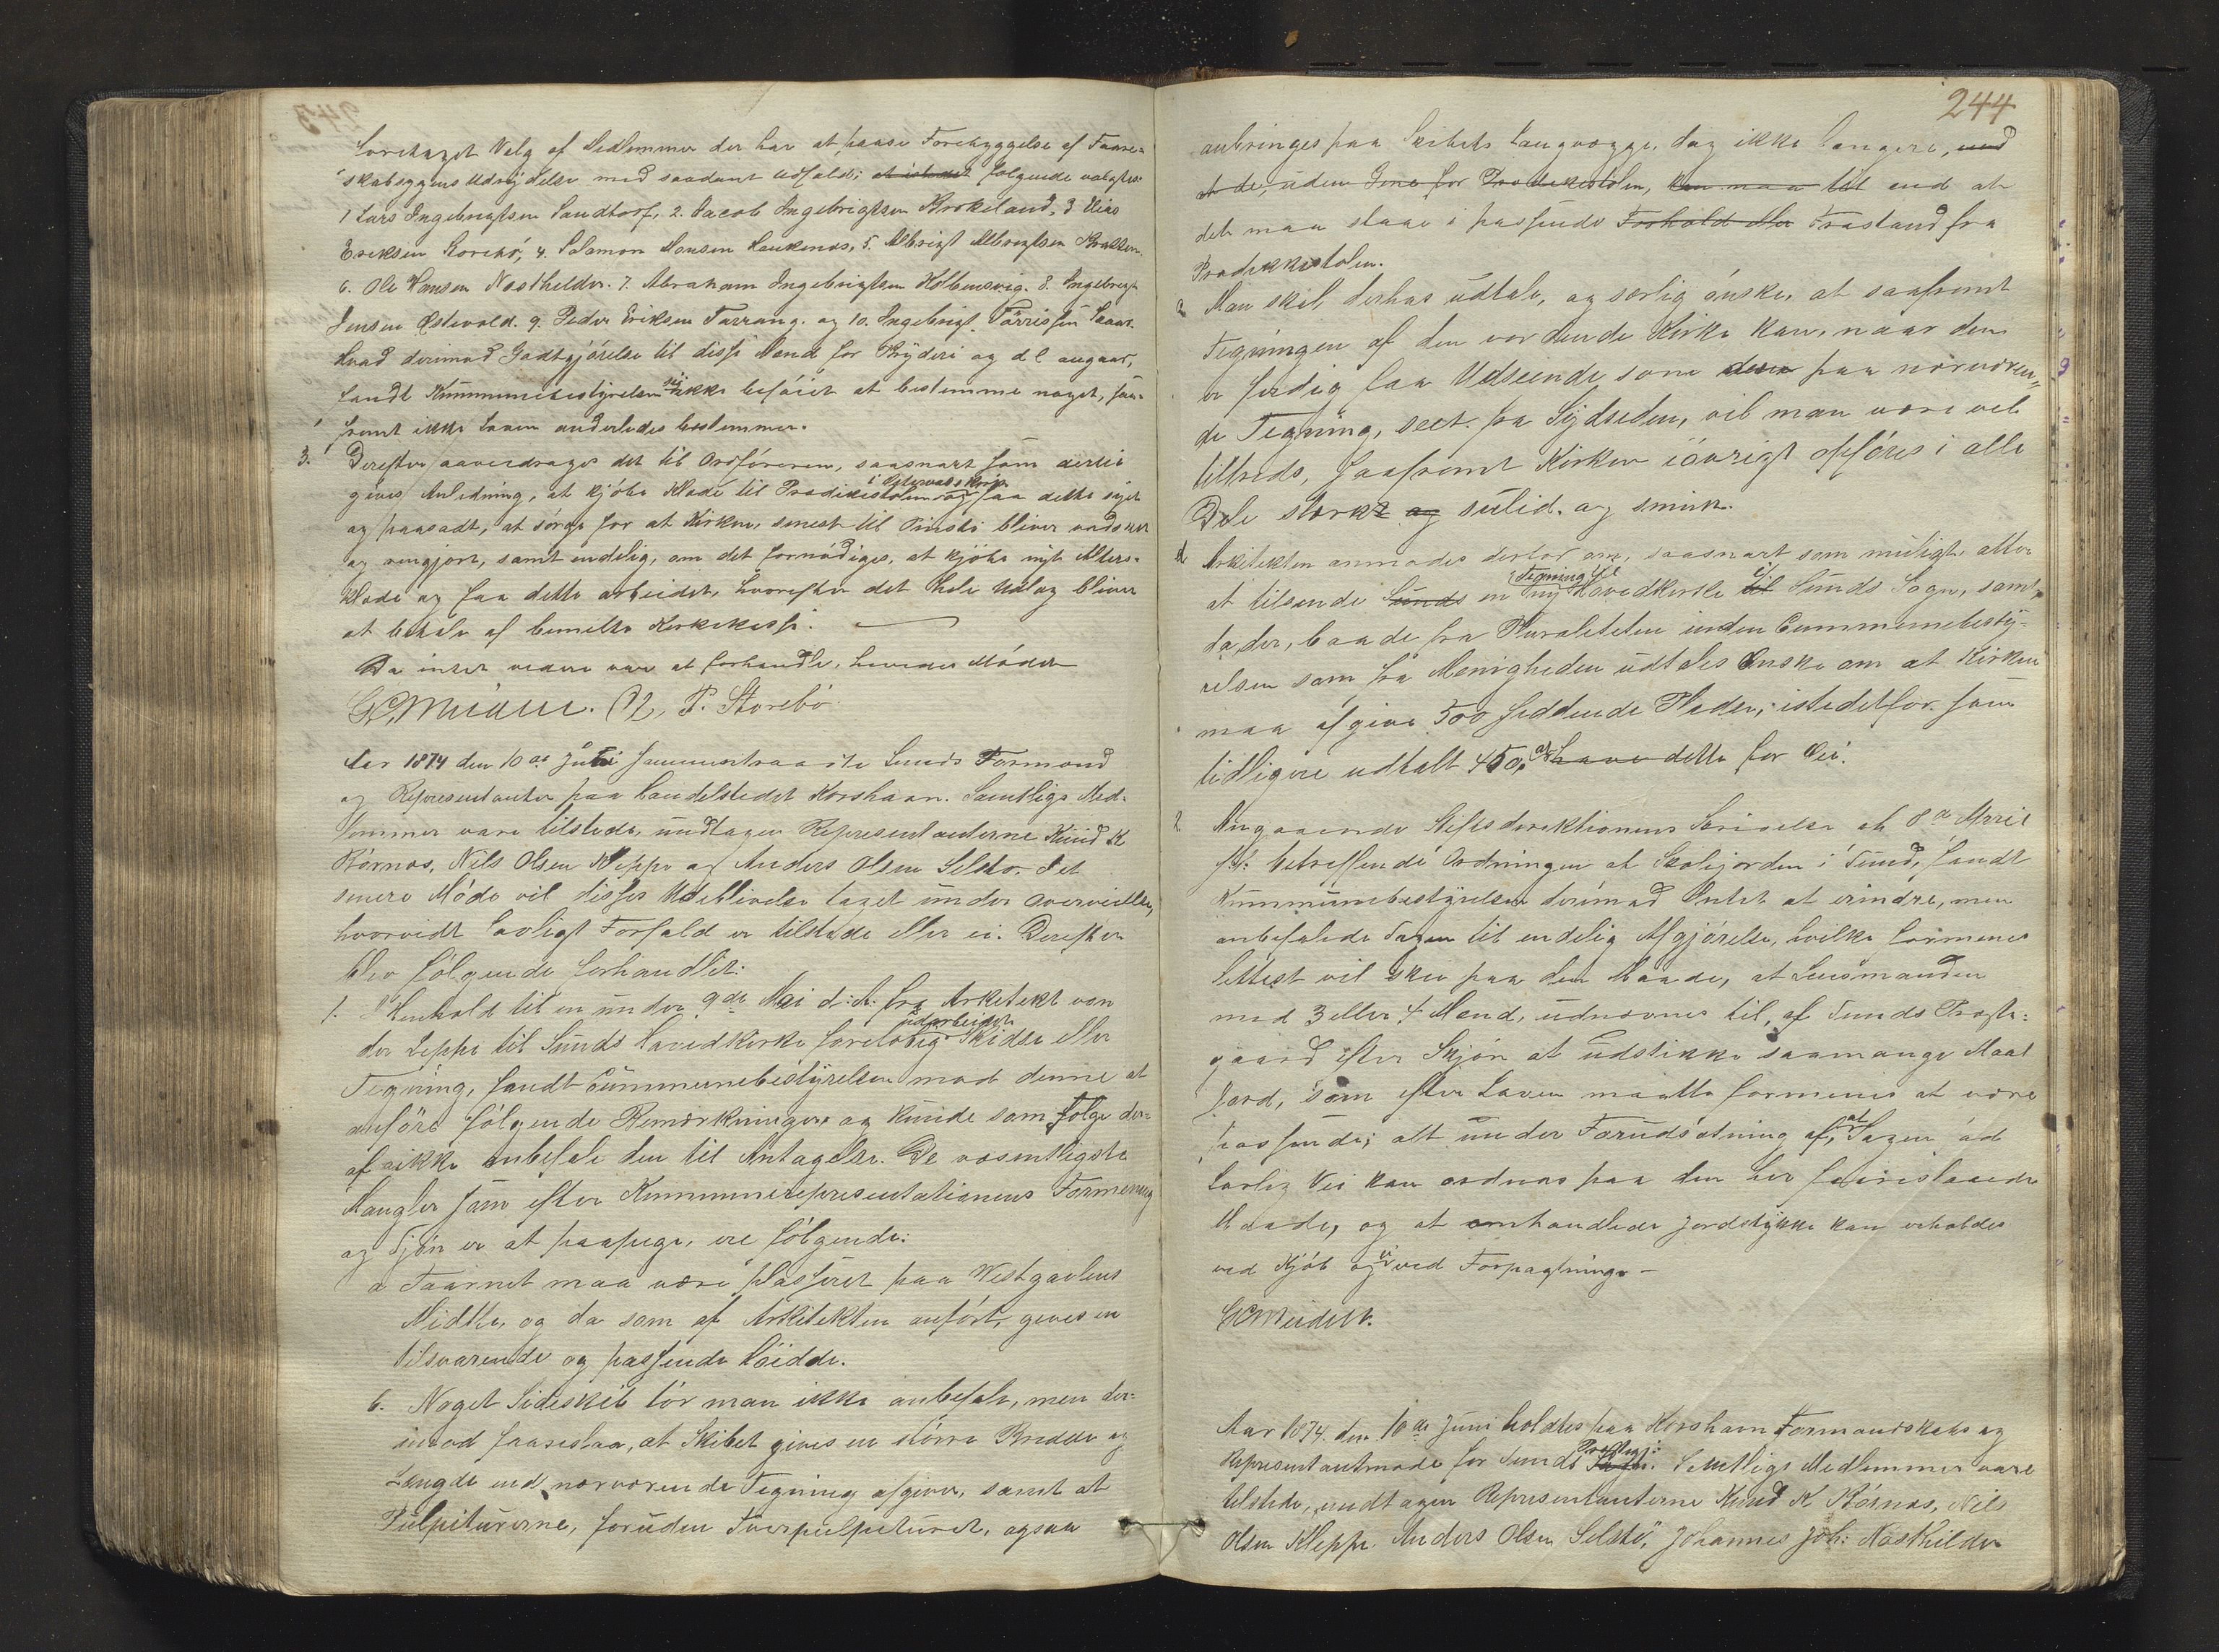 foretaget Valg af Medlemmer der har at paase Forebyggelse af Faare-
skabsygens Udrydelse med saadant Udfald; at istedet følgende valgtes:
1 Lars Ingebrigtsen Sandtorf, 2. Jacob Ingebrigtsen Krokeland, 3 Elias
Eriksen Storebø, 4. Salamon Hansen Haukenæs, 5. Albrigt Albrigtsen
6. Ole Hansen Næsthilder. 7. Abraham Ingebrigtsen Kolbeinsvig. 8. Ingebrigt
Jensen Østevold. 9. Peder Eriksen Tarrang. og 10. Ingebrigt
Hvad derimod Godtgjørelse til disse Mænd for Ryderi og dl angaar,
fandt Kummunebestyrelsen sig ikke beføiet at bestemme noget, saa-
fremt ikke Loven anderledes bestemmer.
3. Derefter overdrages det til Ordføreren, saasnart som dertil
gives Anledning, at kjøbe Klæde til Prædikestolen i Østervoldskirken og faa dette syet
og paasadt, at sørge for at Kirken, senest til Pintse bliver vadsket
og rengjort, samt endelig, om det fornødiges, at kjøbe nyt Alters-
klæde og faa dette arbeidet, hvorefter det hele Udlæg bliver
at betale af bemelte Kirkekasse.
Da intet videre var at forhandle, hævedes Mødet
GCMeidell. O, P. Storebø
Aar 1874 den 10de Juni sammentraadte Sunds Formænd
og Representanter paa Handelstedet Korshavn. Samtlige Med-
lemmer vare tilstede, undtagen Representanterne Knud K
Børnæs, Nils Olsen Kleppe og Anders Olsen Selstø. I et
senere Møde vil disses Udeblivelse taget under overveielse,
hvorvidt Lovligt Forfald er tilstede eller ei. Derefter
blev følgende forhandlet:
1. I Henhold til en under 9de Mai d:A: fra Arkitekt von
der Lippe til Sunds Hovedkirke foreløbig udarbeidet Skidse eller
Tegning, fandt Cummunebestyrelsen mod denne at
anføre følgende Bemærkninger, og kunde som Følge der-
af ikke anbefale den til Antagelse. De væsentligste
Mangler som efter Kummunerepresentationens Formening
og Sjøn er at paapege, ere følgende:
a Taarnet maa være plasseret paa Westgavlens
Midtte, og da som af Arkitekten anført, gives en
tilsvarende og passende Høidde.
b. Noget Sideskib tør man ikke anbefale, men der-
imod foareslaa, at Skibet gives en større Bredde og
Længde end nærværende Tegning afgiver, samt at
Pulpiturerne, foruden Tverpulpituret, ogsaa
244
anbringes paa Skibets Langvægge, dog ikke længere, end
at de, uden Gene for Prædikestolen, kan naa til end at
det maa staae i passende Forhold eller Frastand fra
Prædikkestolen.
c Man skal derhos udtale, og særlig ønske, at saafremt
Tegningen af den vordende Kirke kan, naar den
er ferdig faa Udseende som den paa nærværen-
de Tegning, seet fra Sydsiden, vil man være vel
tilfreds, saafremt Kirken iøvrigt opføres i alle
Dele stærk og sulid. og smuk.
d Arkitekten anmodes derfor om, saasnart som muligt atter
at tilsende Sunds en Tegning til ny Hovedkirke til i Sunds Sogn, samt,
da der, baade fra Pluraliteten inden Cummunebesty-
relsen som fra Menigheden udtales Ønske om at Kirken
maa afgive 500 siddende Pladser, istedetfor som
tidligere udtalt 450, at have dette for Øie.
2. Angaaende Stiftsdirektionens Skrivelse af 8de April
betreffende Ordningen af Skolejorden i Sund, fandt
Kummunebestyrelsen derimod Intet at erindre, men
anbefalede Sagen til endelig Afgjørelse, hvilke formenes
lettest vil ske paa den Maade, at Lensmanden
med 3 eller 4 Mænd, udnævnes til, af Sunds Præste-
gaard efter Skjøn at udstikke saamange Maal
Jord, som efter Loven maatte formenes at være
passende; alt under Forudsætning af, at Sagen ad
Lovlig Vei kan ordnes paa den her foareslaaede
Maade, og at omhandlede Jordstykke kan erholdes
ved Kjøb og ei ved Forpagtning. —
GCMeidell.
Aar 1874. den 10de Juni holdtes paa Korshavn Formandskabs og
Representantmøde for Sunds Præstegj: Samtlige Medlemmer vare
tilstede, undtagen Representanterne Knud K Børnæs, Nils
Olsen Kleppe. Anders Olsen Selstø, Johannes Joh: Næsthilder